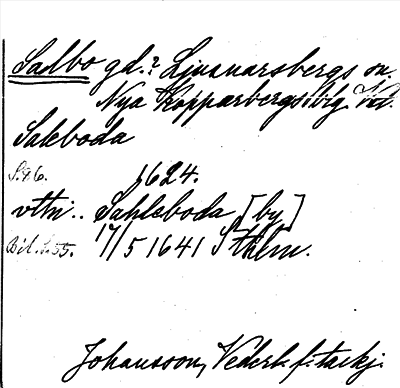 Salbo gd.? Ljusnarsbergs sn.
Nya Kopparbergs blg.
Saleboda
S. 46. 1624.
vttn.. Sahleboda [by]
Bil. s. 55. 17/5 1641 Sthlm.
Johansson, Vederl. f. tackj.